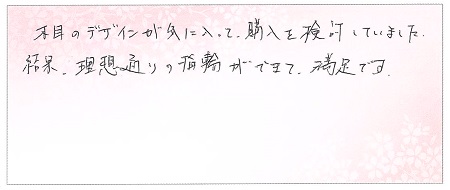 木目のデザインが気に入って、購入を検討していました.
結果、理想通りの指輪ができて、満足です.